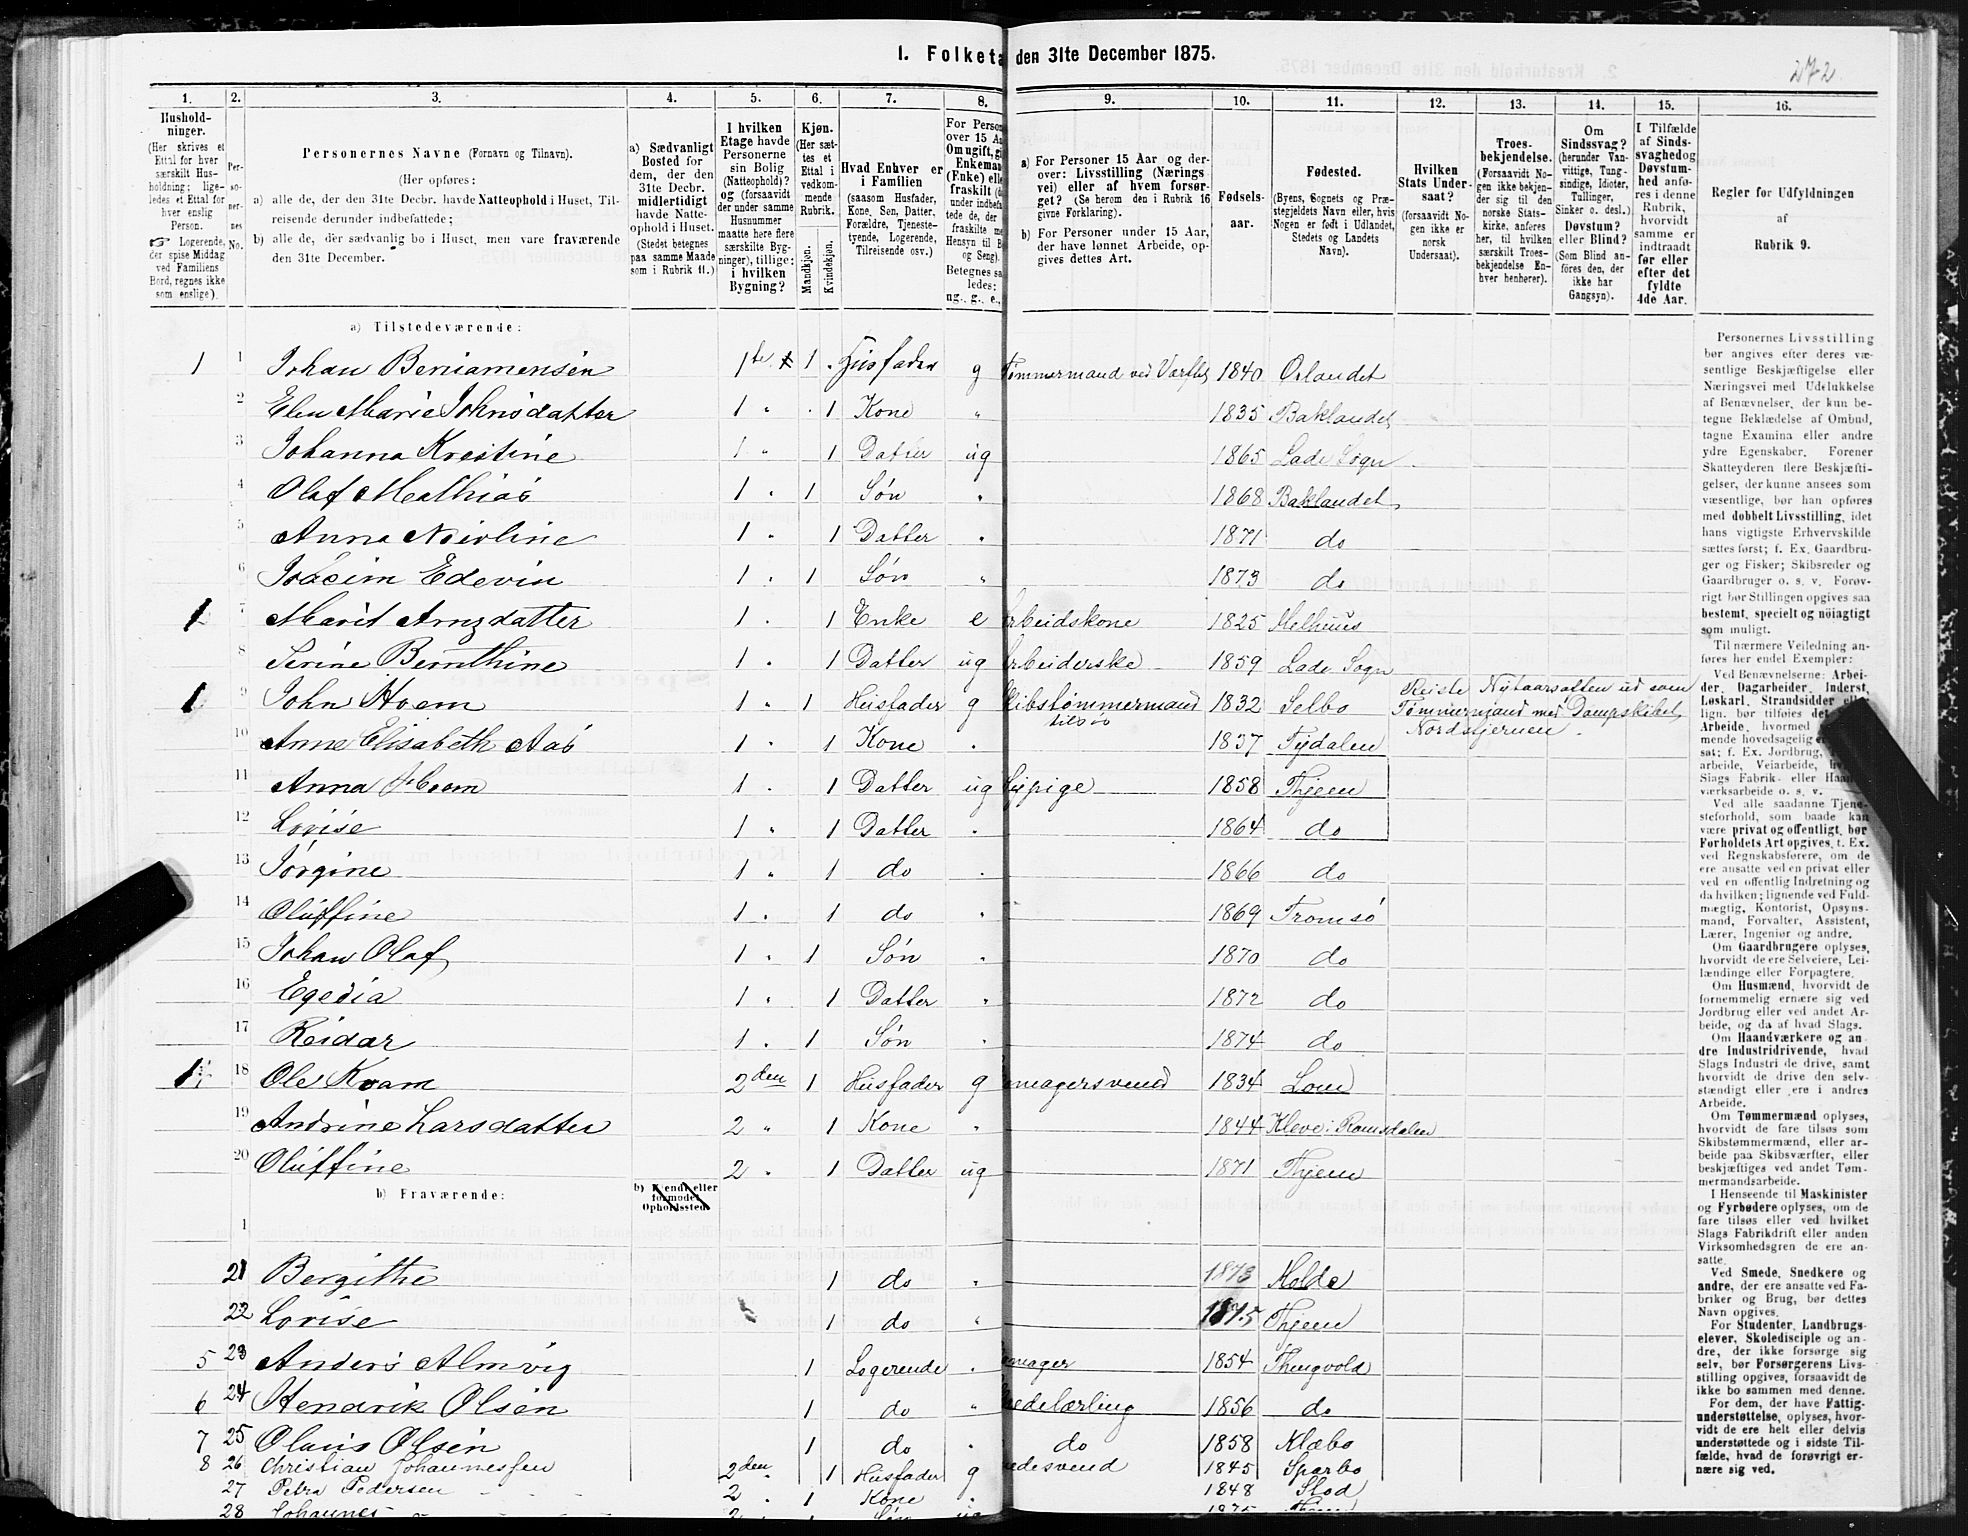 1. Folketæ den 31te December 1875.
272.
1. 2. 3. 4. 5. 6. 7. 8. 9. 10. 11. 12. 13. 14. 15. 16.
Hushold-
ninger.
(Her skrives et
Ettal for hver
særskilt Hus-
holdning; lige-
ledes et Ettal for
hver enslig
Person.
Logerende,
der spise Middag
ved Familiens
Bord, regnes ikke
som enslige).
Per-
so-
ner-
nes
No.
Personernes Navne (Fornavn og Tilnavn).
(Her opføres:
a) alle de, der den 31te Decbr. havde Natteophold i Huset, Til-
reisende derunder indbefattede;
b) alle de, der sædvanlig bo i Huset, men vare fraværende
den 31te December.
a) Sædvanligt
Bosted for
dem, der den
31te Decbr.
midlertidigt
havde Natte-
ophold i Huset.
(Stedet betegnes
paa samme Maade
som i Rubrik 11.)
I hvilken
Etage havde
Personerne
sin Bolig
(Natteophold)?
og (forsaavidt
der under samme
Husnummer
maatte høre flere
særskilte Byg-
ninger), tillige:
i hvilken
Bygning?
Kjøn.
(Her sæt-
tes et
Ettal i
vedkom-
mende
Rubrik.
Mandkjøn.
Kvindekjøn.
Hvad Enhver er
i Familien
(saasom Husfader,
Kone, Søn, Datter,
Forældre, Tjeneste-
tyende, Logerende,
Tilreisende osv.)
For Person
over 15 Aa
Om ugift, gi
Enkeman
(Enke) elle
fraskilt (
under indbefat-
tede de, der
fraskilte m
Hensyn til B
og Seng).
Betegnes saa-
ledes:
ug., g., e.,
a) For Personer 15 Aar og der-
over: Livsstilling (Nærings
vei) eller af hvem forsør-
get? (Se herom den i Rubrik 16
givne Forklaring).
b) For Personer under 15 Aar,
der have lønnet Arbeide, op-
gives dettes Art.
Fødsels-
aar.
Fødested.
(Byens, Sognets og Præ-
stegjeldets Navn eller, hvis
Nogen er født i Udlandet,
Stedets og Landets
Navn).
Hvilken
Stats Under-
saat?
(forsaavidt No-
gen ikke er
norsk
Undersaat).
Troes-
bekjendelse.
(Forsaavidt No-
gen ikke bekjen-
der sig til den
norske Stats-
kirke, anføres
her, til hvilken
særskilt Troes-
bekjendelse En-
hver henhører).
Om
Sindssvag?
(herunder Van-
vittige, Tung-
sindige, Idioter,
Tullinger,
Sinker o. desl.)
Døvstum?
eller Blind?
(Som Blind an-
føres den, der
ikke har
Gangsyn).
I Tilfælde
af Sinds-
svaghed og
Døvstum-
hed anfø-
res i denne
Rubrik,
hvorvidt
samme er
indtraadt
før eller
efter det
fyldte
4de Aar.
Regler for Udfyldningen
af
Rubrik 9.
a) Tilstedeværende:
1 1 Johan Beniamensen 1te 1 Husfader g Tømmermand ved Værftet 1840 Ørlandet
2 Elen Marie Johnsdatter 1 " 1 Kone " 1835 Baklandet
3 Johanna Krestine 1 " 1 Datter ug 1865 Lade Sogn
4 Olaf Mathias 1 " 1 Søn " 1868 Baklandet
5 Anna 1 " 1 Datter " 1871 do
6 Joacim Edevin 1 " 1 Søn " 1873 do
1 7 Marit Arnzdatter 1 " 1 Enke e Arbeidskone 1825 Melhuus
8 Serine Bernthine 1 " 1 Datter ug Arbeiderske 1859 Lade Sogn
1 9 John Hoem 1 " 1 Husfader g Skibstømmermand tilsøs 1832 Selbo Reiste Nytaarsatten ud som
Tømmermand med Dampskibet
Nordstjernen.
10 Anne Elisabeth Aas 1 " 1 Kone " 1837 Tydalen
11 Anna Hoem 1 " 1 Datter ug Sypige 1858 Thjem
12 Lovise 1 " 1 Datter " 1864 do
13 Jørgine 1 " 1 do " 1866 do
14 Oluffine 1 " 1 do " 1869 Tromsø
15 Johan Olaf 1 " 1 Søn " 1870 do
16 Egedia 1 " 1 Datter " 1872 do
17 Reidar 1 " 1 Søn " 1874 do
1 18 Ole Kvam 2den 1 Husfader g magersvend 1834 Lom
19 Andrine Larsdatter 2 " 1 Kone " 1844 Kleve i Romsdalen
20 Oluffine 2 " 1 Datter ug 1871 Thjem
b) Fraværende: b) Kjendt eller
formodet
Opholdssted.
1
21 Bergithe 1 do " 1873 Molde
22 Lovise 1 do " 1875 Thjem
5 23 Anders Almvig 1 Logerende " mager 1854 Thingvold
6 24 Hendrik Olsen 1 do " edelærling 1856 do
7 25 Olaus Olsen 1 do " do 1858 Klæbo
8 26 Christian Johannessen 2den 1 Husfader g edesvend 1845 Sparbo
27 Petra Pedersen 2 " 1 Kone " 1848 Stod
28 Johannes 2 " Søn ug 1875 Thjem
Personernes Livsstilling
bør angives efter deres væ-
sentlige Beskjæftigelse eller
Næringsvei med Udelukkelse
af Benævnelser, der kun be-
tegne Beklædelse af Ombud,
tagne Examina eller andre
ydre Egenskaber. Forener
Skatteyderen flere Beskjæfti-
gelser, der kunne ansees som
væsentlige, bør han opføres
med dobbelt Livsstilling, idet
hans vigtigste Erhvervskilde
sættes først; f. Ex. Gaardbru-
ger og Fisker; Skibsreder og
Gaardbruger o. s. v. Forøv-
rigt bør Stillingen opgives saa
bestemt, specielt og nöiagtigt
som muligt.
Til nærmere Veiledning an-
føres her endel Exempler:
Ved Benævnelserne: Arbei-
der, Dagarbeider, Inderst,
Løskarl, Strandsidder eller
lign. bør tilføies det
Arbeide, hvormed
mende hovedsagelig e
sat; f. Ex. Jordbrug,
arbeide, Veiarbeide,
Slags Fabrik- eller Haand-
værksarbeide o. s. v.
Ved alle saadanne Tjene-
steforhold, som baade kan
være privat og offentligt, bør
Forholdets Art opgives, t. Ex.
ved Regnskabsførere, om de
ere ansatte ved en privat eller
ved en offentlig Indretning og
da hvilken; lignende ved Fuld-
mægtig, Kontorist, Opsyns-
mand, Forvalter, Assistent,
Lærer, Ingeniør og andre.
Om Gaardbrugere oplyses,
hvorvidt de ere Selveiere, Lei-
lændinge eller Forpagtere.
Om Husmænd, hvorvidt de
fornemmelig ernære sig ved
Jordbrug eller ved andet Ar-
beide, og da af hvad Slags.
Om Haandværkere og an-
dre Industridrivende, hvad
Slags Industri de drive, samt
hvorvidt de drive den selv-
stændigt eller ere i andres
Arbeide.
Om Tømmermænd oplyses,
hvorvidt de fare tilsøs som
Skibstømmermænd, eller ar-
beide paa Skibsværfter, eller
beskjæftiges ved andet Tøm-
mermandsarbeide.
I Henseende til Maskinister
og Fyrbødere oplyses, om de
fare tilsøs eller ved hvilket
Slags Fabrikdrift eller anden
Virksomhedsgren de ere an-
satte.
Ved Smede, Snedkere og
andre, der ere ansatte ved Fa-
briker og Brug, bør dettes
Navn opgives.
For Studenter, Landbrugs-
elever, Skoledisciple og an-
dre, der ikke forsørge sig
selv, bør Forsørgerens Livs-
stilling opgives, forsaavidt de
ikke bo sammen med denne.
For dem, der have Fattig-
understøttelse, oplyses, hvor-
vidt de ere helt eller delvis
understøttede og i sidste Til-
fælde, hvad de forøvrigt er-
nære sig ved.